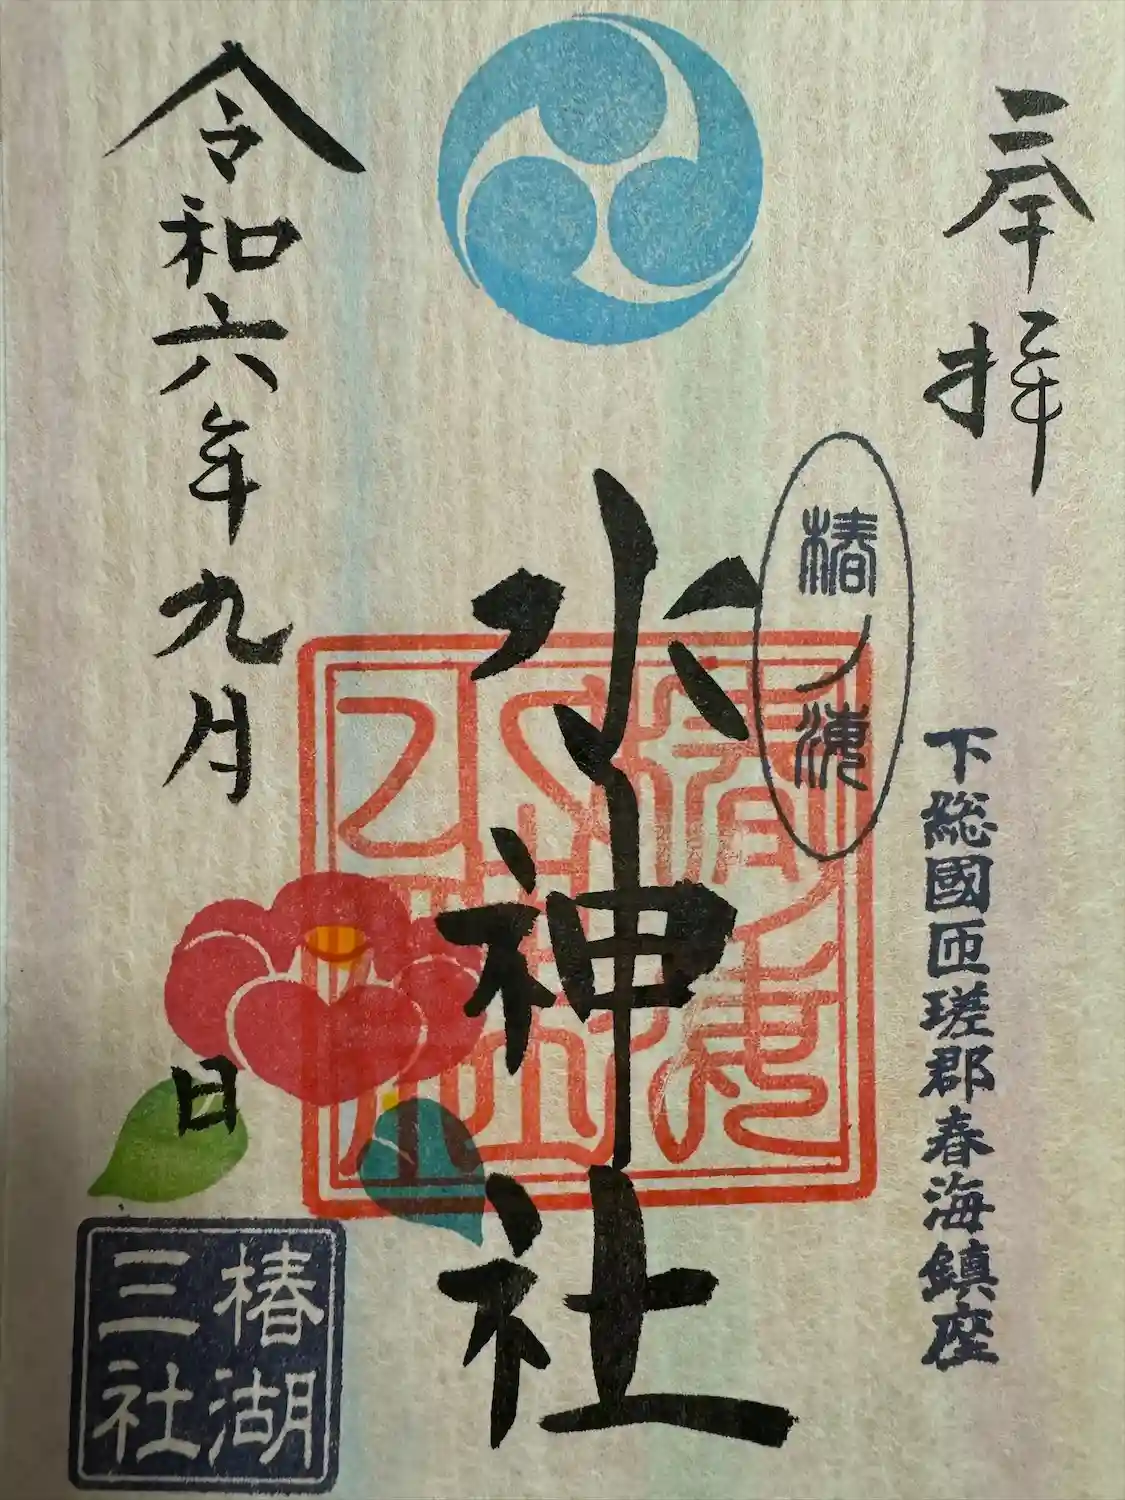 奉拝
下総國匝瑳郡春海鎮座
椿ノ海
水神社
春海水神社
令和六年九月
日
椿湖
三社